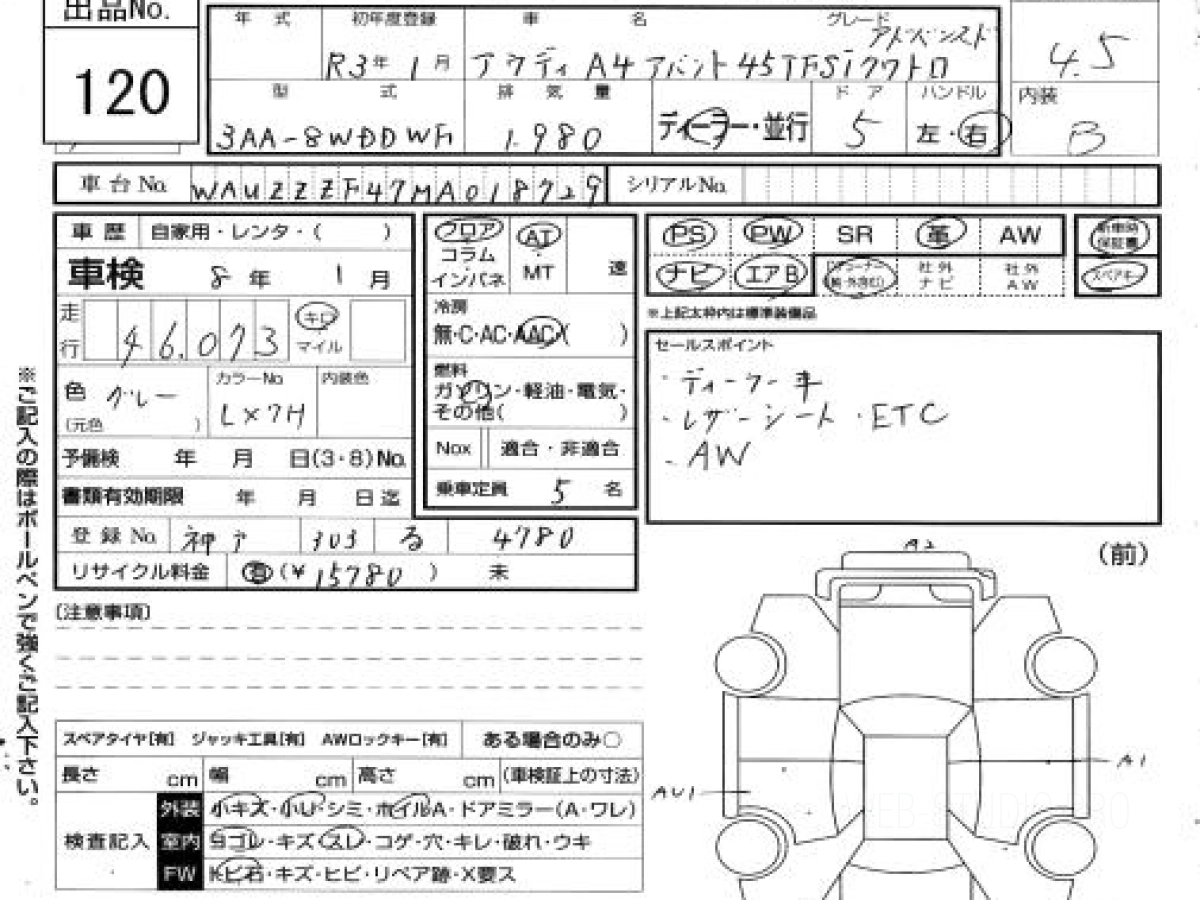 出品No.
120
年式 初年度登録 車名 グレード
アドバンスド
R3年 1月 アウディ A4 アバント 45TFSIクワトロ
4.5
型式 排気量 ディーラー・並行 ドア ハンドル 内装
3AA-8WDDWF 1.980 5 左・右 B
車台No. WAUZZZF47MA018729 シリアルNo.
車歴 自家用・レンタ・( )
車検 8年 1月
走行 46.073 キロ マイル
色 グレー (元色 ) カラーNo LX7H 内装色
予備検 年 月 日(3・8)No.
書類有効期限 年 月 日迄
登録No. 神戸 303 る 4780
リサイクル料金 有(¥15780) 未
フロア コラム インパネ AT MT 速
冷房
無・C・AC・AAC( )
燃料
ガソリン・軽油・電気・
その他( )
Nox 適合・非適合
乗車定員 5 名
PS PW SR 革 AW 新車時保証書
ナビ エアB 社外ナビ 社外AW スペアキー
※上記太枠内は標準装備品
セールスポイント
・ディーラー車
・レザーシート・ETC
・AW
※ご記入の際はボールペンで強くご記入下さい。
(注意事項)
スペアタイヤ[有] ジャッキ工具[有] AWロックキー[有] ある場合のみ○
長さ cm 幅 cm 高さ cm (車検証上の寸法)
検査記入
外装 小キズ・小U・シミ・ホイルA・ドアミラー(A・ワレ)
室内 ヨゴレ・キズ・スレ・コゲ・穴・キレ・破れ・ウキ
FW トビ石・キズ・ヒビ・リペア跡・X要ス
(前)
A2
A1
AU1